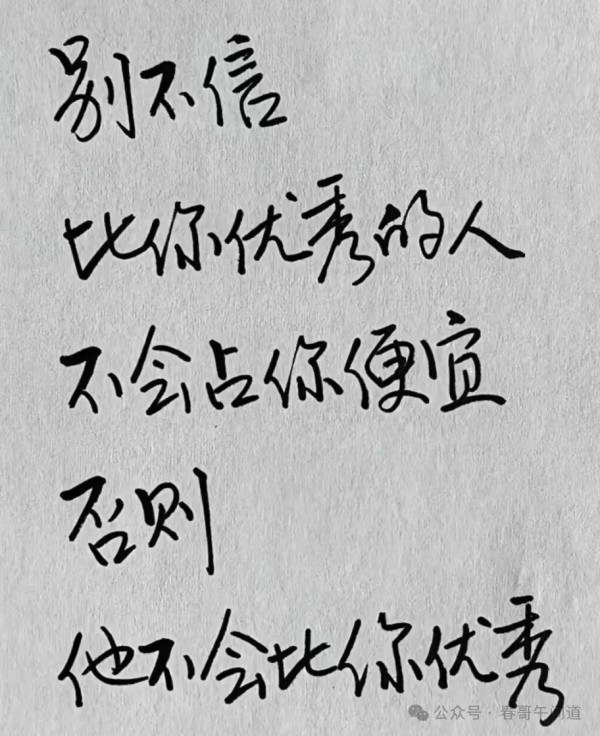 别不信
比你优秀的人
不会占你便宜
否则
他不会比你优秀
公众号·春哥午间道